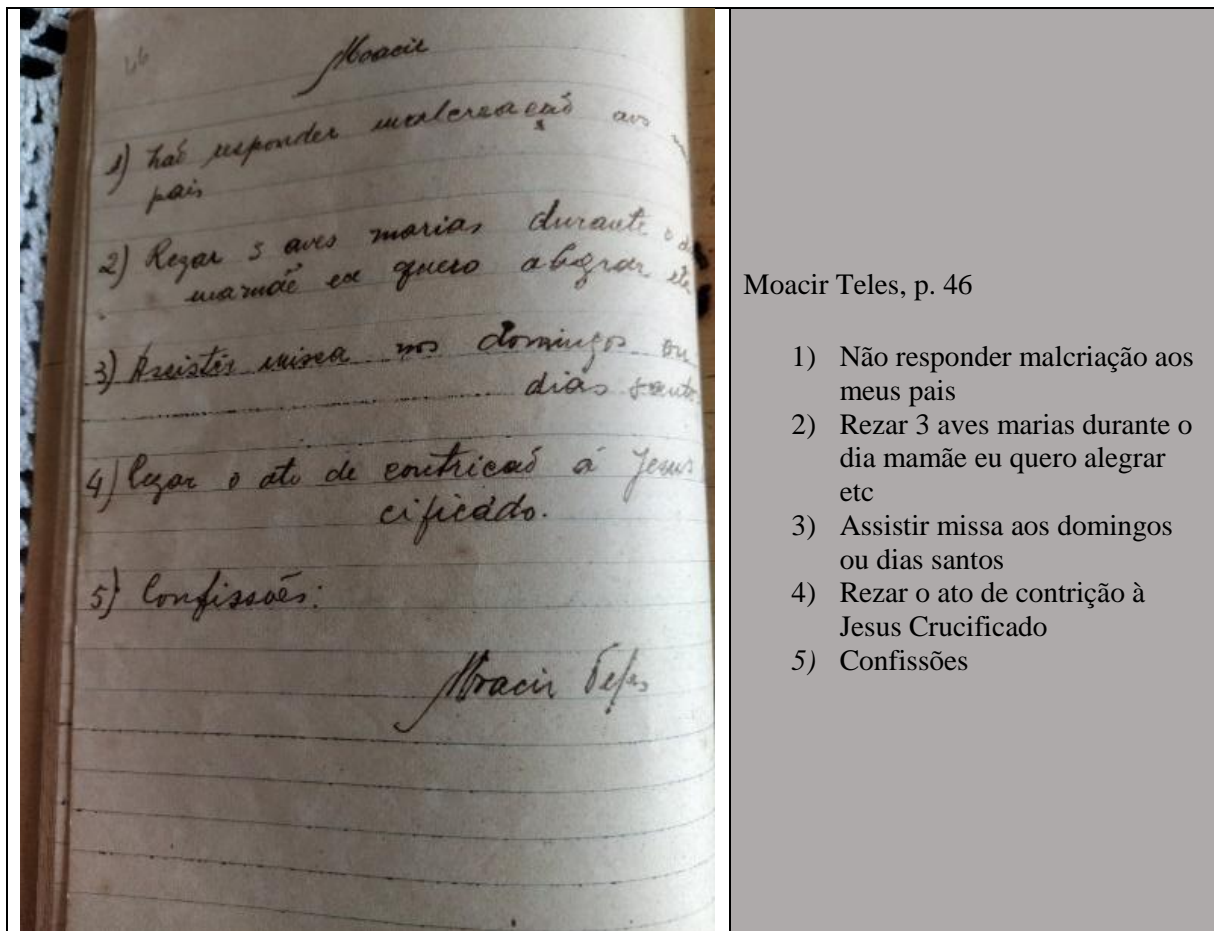 46
Moacir
1) Naõ responder malcreaçaõ aos
pais
2) Rezar 3 aves marias durante o
mamãe eu quero alegrar etc
3) Assistir missa nos domingos ou
dias santo
4) Rezar o ato de contricaõ á Jesus
cificádo.
5) Confissões:
Moacir Teles
Moacir Teles, p. 46
1) Não responder malcriação aos
meus pais
2) Rezar 3 aves marias durante o
dia mamãe eu quero alegrar
etc
3) Assistir missa aos domingos
ou dias santos
4) Rezar o ato de contrição à
Jesus Crucificado
5) Confissões